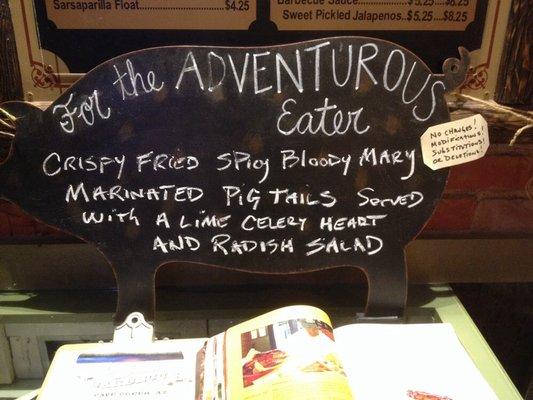 Sarsaparilla Float $4.25
Barbecue Sauce $5.25 $8.25
Sweet Pickled Jalapenos..$5.25...$8.25
For the ADVENTUROUS
Eater
CRISPY FRIED SPICY BLOODY MARY
MARINATED PIG TAILS SERVED
WITH A LIME CELERY HEART
AND RADISH SALAD
NO CHANGES!
MODIFICATIONS!
SUBSTITUTIONS!
OR DELETIONS!